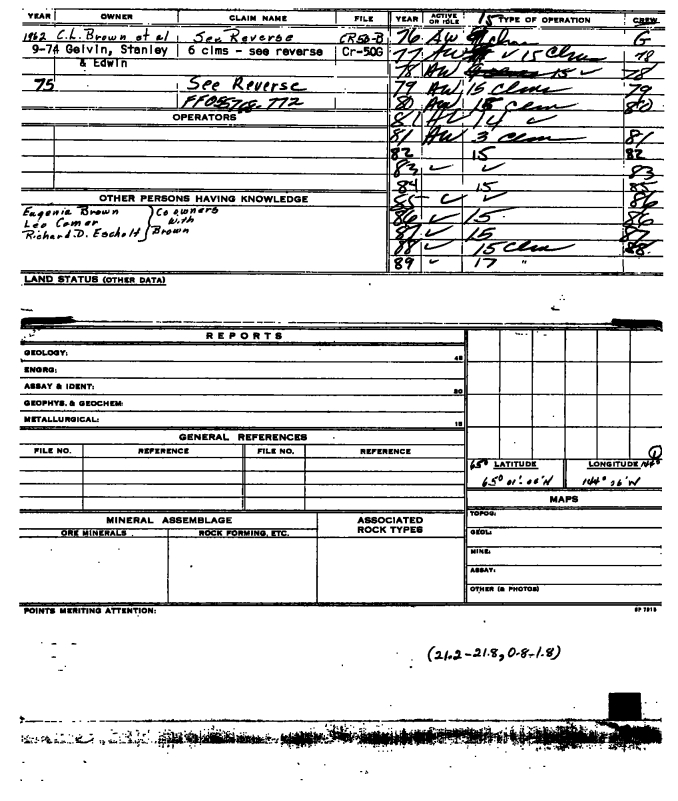 YEAR OWNER CLAIM NAME FILE YEAR ACTIVE OR IDLE 15 TYPE OF OPERATION CREW
1962 C.L. Brown et al See Reverse CR50-B 76 AW clms G
9-74 Gelvin, Stanley 6 clms - see reverse Cr-50G 77 AW ✓ 15 Clms 78
& Edwin 78 AW 15 ✓ 78
75 See Reverse 79 AW 15 Clms 79
FF085768-772 80 AW 15 Clms 80
OPERATORS 81 14 ✓
81 AW 3 clms 81
82 15 82
83 ✓ ✓ 83
84 15 85
OTHER PERSONS HAVING KNOWLEDGE 85 ✓ ✓ 86
Eugenia Brown Co owners
Leo Comer with 86 ✓ 15 86
Richard D. Escholt Brown 87 ✓ 15 87
88 ✓ 15 Clms 88
89 ✓ 17 "
LAND STATUS (OTHER DATA)
REPORTS
GEOLOGY: 45
ENGRG:
ASSAY & IDENT: 30
GEOPHYS. & GEOCHEM:
METALLURGICAL: 15
GENERAL REFERENCES
FILE NO. REFERENCE FILE NO. REFERENCE
1
65° LATITUDE LONGITUDE 144°
65° 01' 00"N 144° 26' W
MAPS
MINERAL ASSEMBLAGE ASSOCIATED ROCK TYPES TOPOG:
ORE MINERALS ROCK FORMING, ETC. GEOL:
MINE:
ASSAY:
OTHER (& PHOTOS)
POINTS MERITING ATTENTION:
(21.2-21.8, 0.8-1.8)